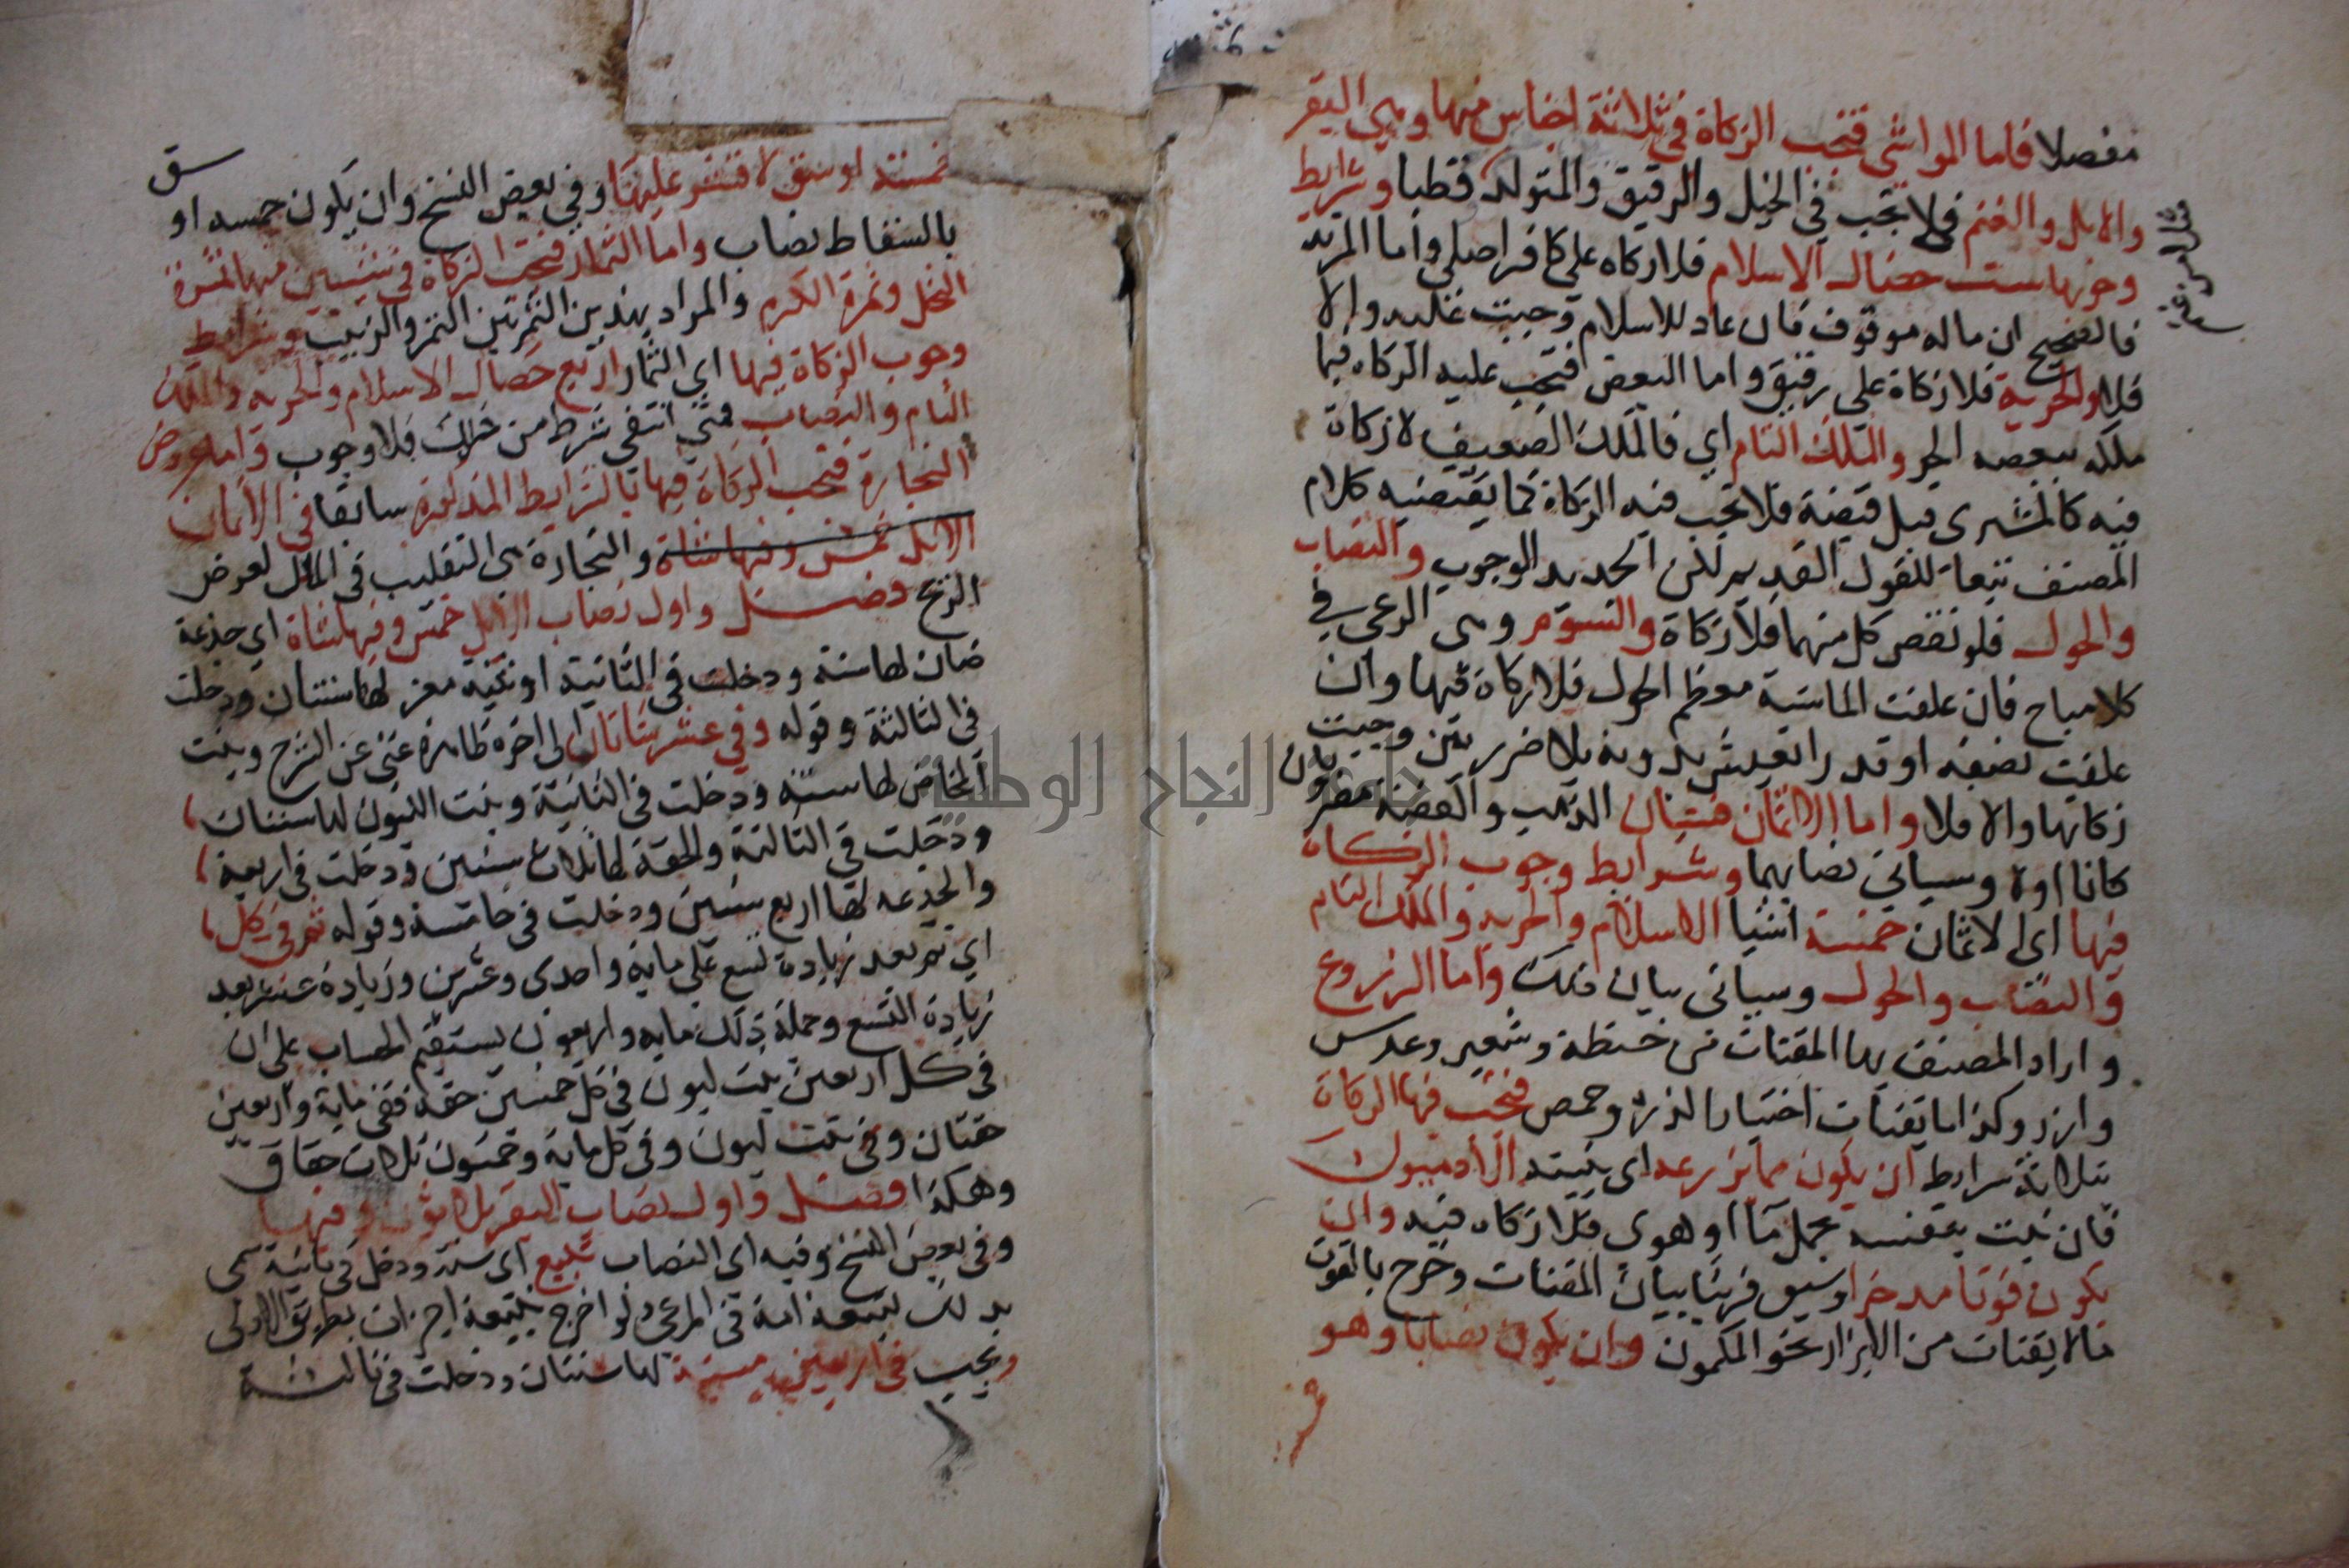 مفصلا فاما المواشي فتجب الزكاة في ثلاثة اجناس منها وهي البقر
والابل والغنم فلا تجب في الخيل والرقيق والمتولد قطبا وشرايط
وجوبها ست خصال الاسلام فلا زكاه على كافر اصلي واما المرتد
فالصحيح ان ماله موقوف فان عاد للاسلام وجبت عليه والا
فلا والحرية فلا زكاة على رقيق واما البعض فتجب عليه الزكاه فيما
ملكه ببعضه الحر والملك التام اي فالملك الضعيف لا زكاة
فيه كالمشترى قبل قبضة فلا تجب فيه الزكاة كما يقتضيه كلام
المصنف تبعا للقول القديم لكن الجديد الوجوب والنصاب
والحول فلو نقص كل منهما فلا زكاة والسوم وهي الرعي في
كلا مباح فان علفت الماشية معظم الحول فلا زكاة فيها وان
علفت نصفه او قدرا تعيش بدونه بلا ضرر بين وجبت
زكاتها والا فلا واما الاثمان فشيئان الذهب والفضة مضروبان
كانا اولا وسياتي نصابهما وشرايط وجوب الزكاة
فيها اي الاثمان خمسة اشيا الاسلام والحريه والملك التام
والنصاب والحول وسياتي بيان ذلك واما الزروع
واراد المصنف بها المقتات من حنطة وشعير وعدس
وارز وكذا ما يقتات اختيارا لذرة وحمص فتجب فيها الزكاة
بثلاثة شرايط ان يكون مما يزرعه اي ينبته الآدميون
فان نبت بنفسه بحمل ما او هوى فلا زكاه فيه وان
يكون قوتا مدخرا وسبق قريبا بيان المقتات وخرج بالقوت
مالا يقتات من الابزار نحو الكمون وان يكون نصابا وهو
خمسة اوسق لا قشر عليها وفي بعض النسخ وان يكون خمسه او
سق
باسقاط نصاب واما الثمار فتجب الزكاة في شيئين منها ثمرة
النخل وثمرة الكرم والمراد بهذين الثمرتين التمر والزبيب وشرايط
وجوب الزكاة فيها اي الثمار اربع خصال الاسلام والحريه والملك
التام والنصاب فمتى انتفى شرط من ذلك فلا وجوب واما عروض
التجارة فتجب الزكاة فيها بالشرايط المذكورة سابقا في الاثمان
الابل خمس وفيها شاة والتجارة هي التقليب في المال لغرض
الربح فصل واول نصاب الابل خمس وفيها شاة اي جذعة
ضان لها سنة ودخلت في الثانية او ثنية معز لها سنتان ودخلت
في الثالثة وقوله وفي عشر شاتان الى اخره ظاهره غني عن الشرح وبنت
المخاض لها سنة ودخلت في الثانية وبنت اللبون لها سنتان
ودخلت في الثالثة والحقة لها ثلاث سنين ودخلت في اربعة
والجذعه لها اربع سنين ودخلت في خامسة وقوله ثم في كل
اي ثم بعد زيادة تسع على مايه واحدى وعشرين وزيادة عشر بعد
زيادة التسع وجملة ذلك مايه واربعون يستقيم الحساب على ان
في كل اربعين بنت لبون في كل خمسين حقه ففي ماية واربعين
حقتان وفي بنت لبون وفي كل ماية وخمسون ثلاث حقاق
وهكذا فصل واول نصاب البقر ثلاثون وفيها
وفي بعض النسخ وفيه اي النصاب تبيع اي سنة ودخل في ثانية سمى
بذلك لتبعه امه في المرعى ولو اخرج تبيعة اجزات بطريق الاولى
وتجب في اربعين مسنة لها سنتان ودخلت في ثالثة
جامعة النجاح الوطنية